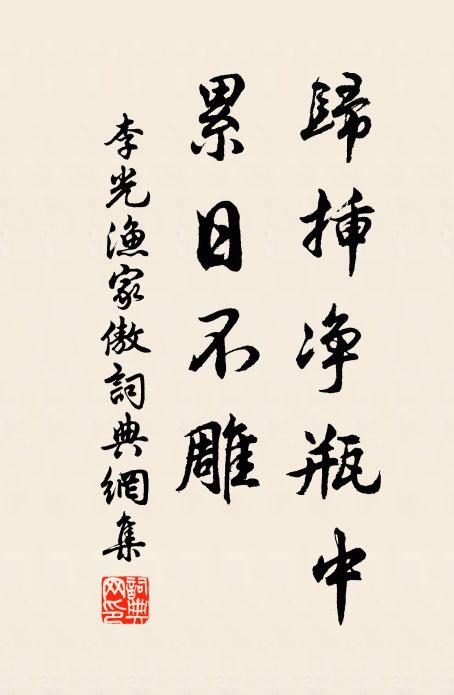 歸挿净瓶中
累日不雕
李光漁家傲詞典網集
詞典网印